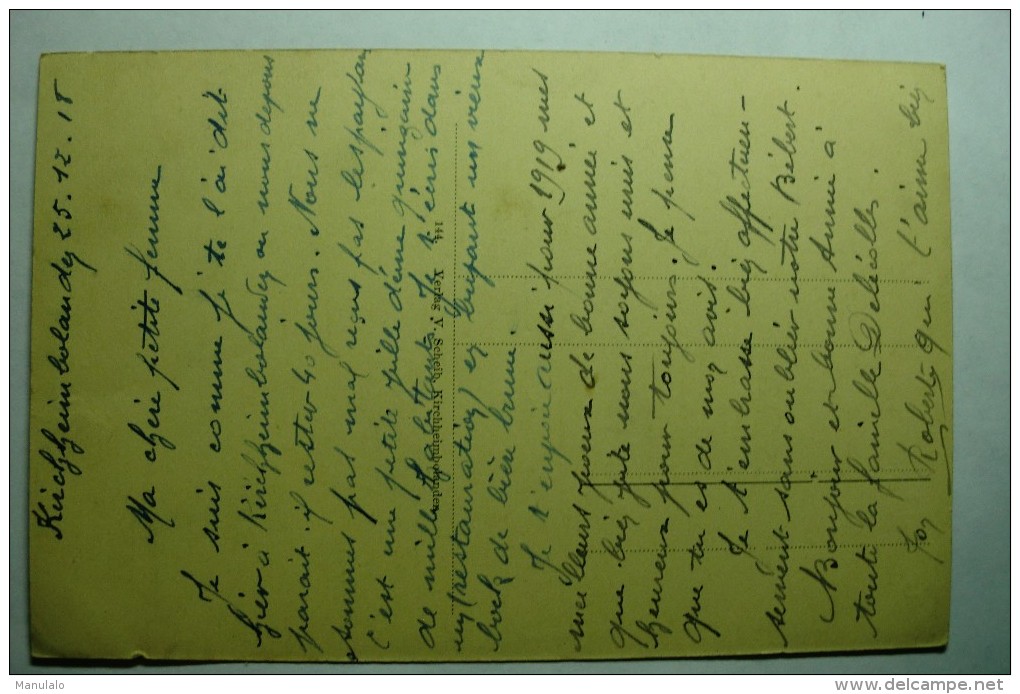 Kirchheimbolandey 25.12.18
Ma chère petite femme
Je suis comme je te l'ai dit
hier à Kirchheimbolandey ou nous devons
parait-il rester 40 jours. Nous ne
sommes pas mal reçus pas
c'est une petite ville d'une quinzaine
de mille habitants Je t'écris dans
un (restauration) en buvant un vieux
bock de bière brune
Je t'envoie aussi pour 1919 mes
meilleurs voeux de bonne année et
que bien vite nous soyons unis et
heureux pour toujours. Je pense
que tu es de mon avis.
Je t'embrasse bien affectueu-
sement sans oublier notre Bébert.
Bonjour et bonne Année à
toute la famille Delécolle.
Ton Robert qui t'aime bien
144 Verlag V. Scheib, Kirchheimbolanden
Manulalo
http://www.delcampe.net